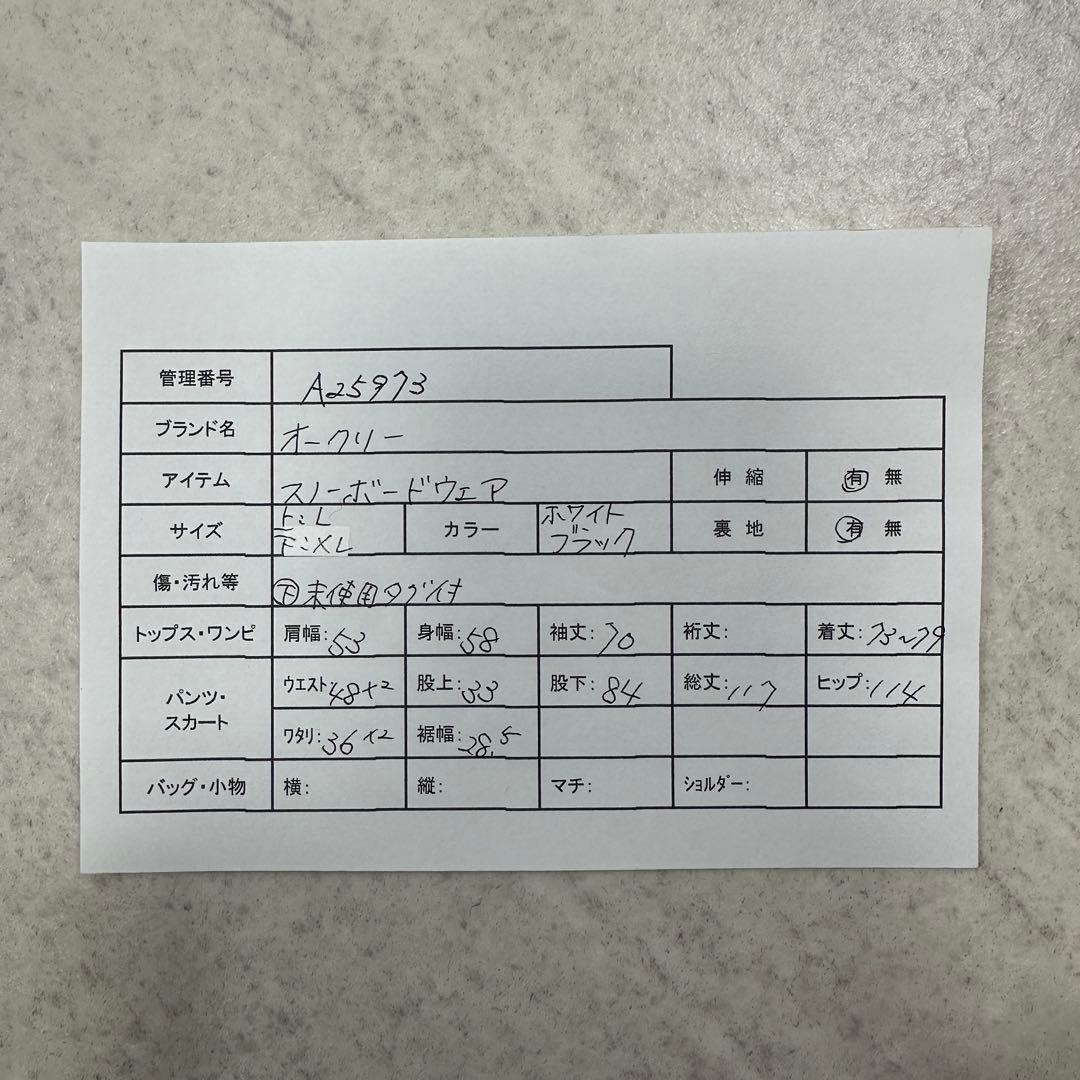 管理番号 A25973
ブランド名 オークリー
アイテム スノーボードウェア 伸縮 有 無
サイズ 上:L 下:XL カラー ホワイト ブラック 裏地 有 無
傷・汚れ等 下 未使用タグ付
トップス・ワンピ 肩幅:53 身幅:58 袖丈:70 裄丈: 着丈:73~79
パンツ・スカート ウエスト:48×2 股上:33 股下:84 総丈:117 ヒップ:114
ワタリ:36×2 裾幅:28.5
バッグ・小物 横: 縦: マチ: ショルダー: